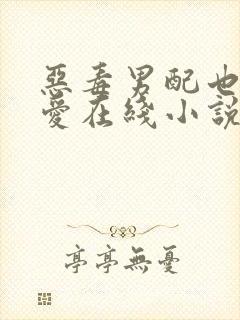 惡毒男配也
愛在綫小説
亭亭無憂